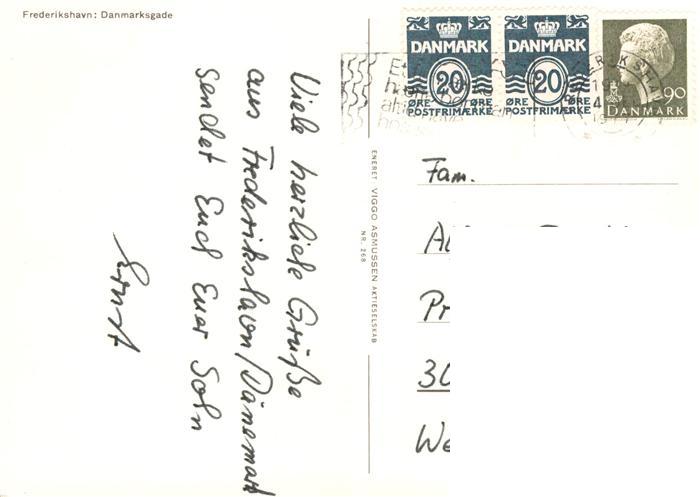 Frederikshavn: Danmarksgade
DANMARK
20
ØRE ØRE
POSTFRIMÆRKE
DANMARK
20
ØRE ØRE
POSTFRIMÆRKE
90
DANMARK
Viele herzliche Grüße
aus Frederikshavn/Dänemark
sendet Euch Euer Sohn
Ernst
ENERET VIGGO ASMUSSEN AKTIESELSKAB
NR. 268
Fam.
Al
Pr
30
We